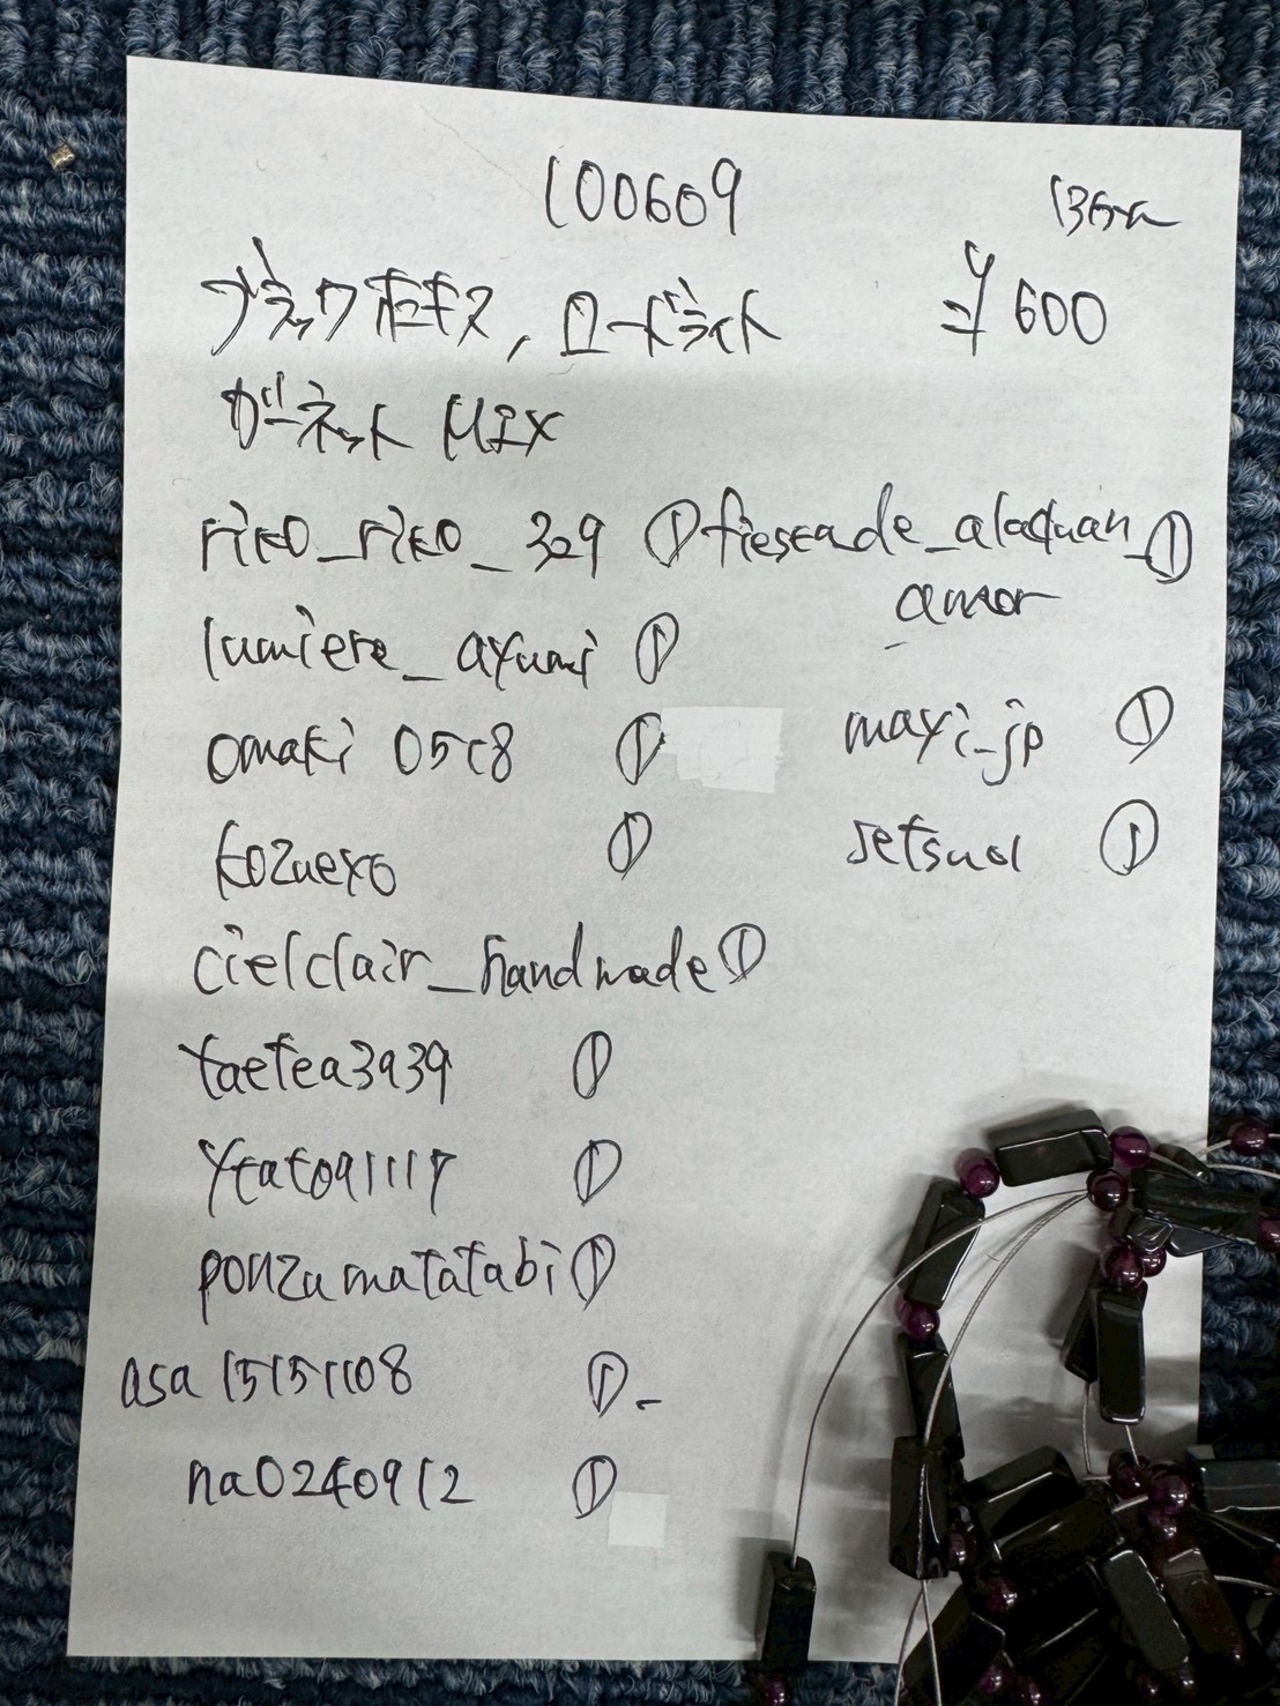 100609
ブラックオニキス, ロードライト ¥600
ガーネット MIX
riko_riko_329 ① ①
lumiere_ayumi ①
omaki 0518 ① mayi_jp ①
kozuexo ① setsuol ①
cielclair_handmade ①
①
①
ponzumatatabi ①
asa 15151108 ①
na0240912 ①